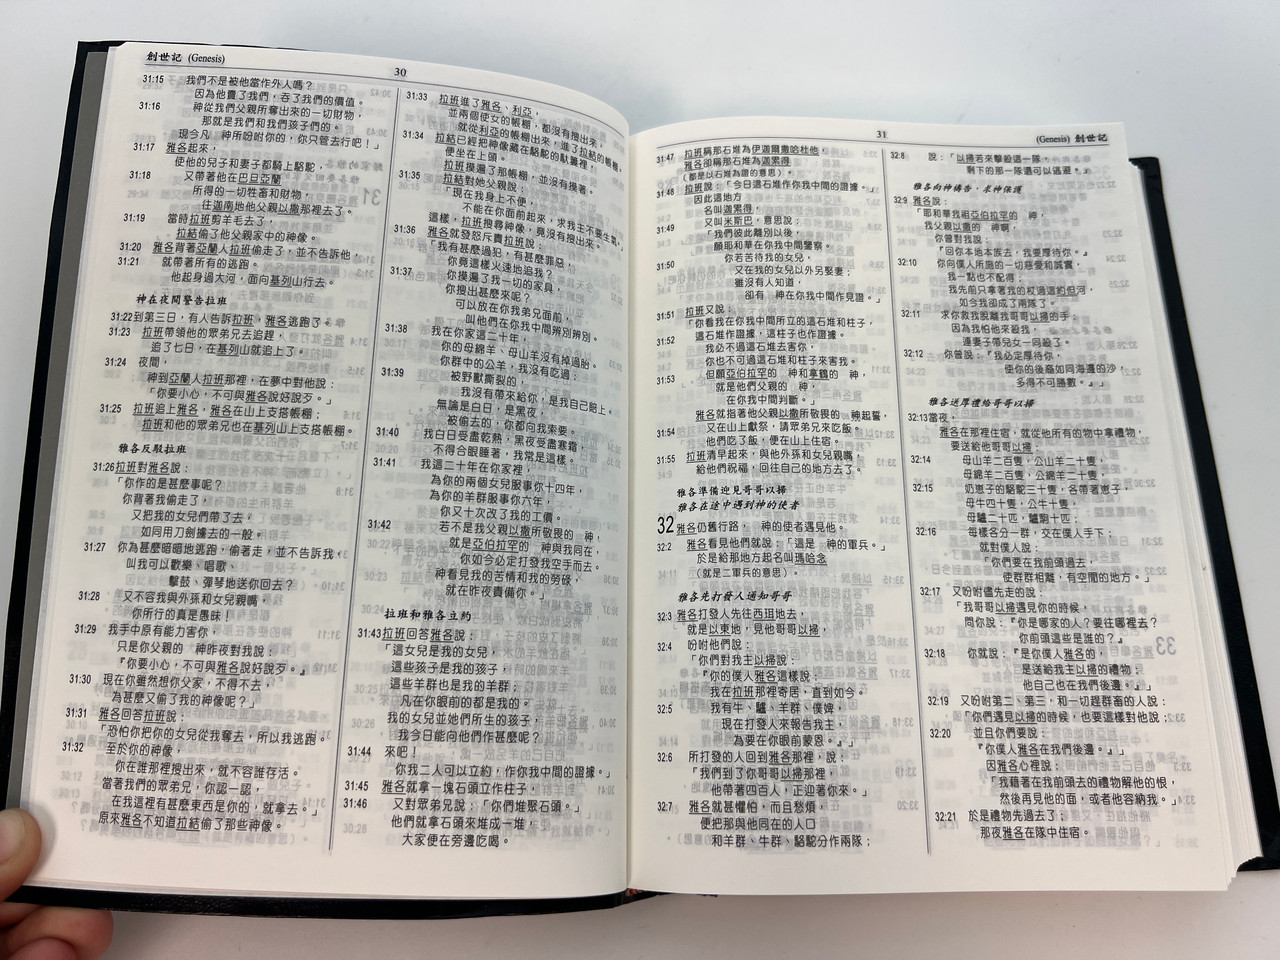 創世記 (Genesis)
30
31:15 我們不是被他當作外人嗎?
因為他賣了我們,吞了我們的價值。
31:16 神從我們父親所奪出來的一切財物,
那就是我們和我們孩子們的。
現今凡 神所吩咐你的,你只管去行吧!」
31:17 雅各起來,
使他的兒子和妻子都騎上駱駝,
31:18 又帶著他在巴旦亞蘭
所得的一切牲畜和財物,
往迦南地他父親以撒那裡去了。
31:19 當時拉班剪羊毛去了,
拉結偷了他父親家中的神像。
31:20 雅各背著亞蘭人拉班偷走了,並不告訴他,
31:21 就帶著所有的逃跑。
他起身過大河,面向基列山行去。
神在夜間警告拉班
31:22到第三日,有人告訴拉班,雅各逃跑了。
31:23 拉班帶領他的眾弟兄去追趕,
追了七日,在基列山就追上了。
31:24 夜間,
神到亞蘭人拉班那裡,在夢中對他說:
「你要小心,不可與雅各說好說歹。」
31:25 拉班追上雅各,雅各在山上支搭帳棚;
拉班和他的眾弟兄也在基列山上支搭帳棚。
雅各反駁拉班
31:26拉班對雅各說:
「你作的是甚麼事呢?
你背著我偷走了,
又把我的女兒們帶了去,
如同用刀劍擄去的一般。
31:27 你為甚麼暗暗地逃跑,偷著走,並不告訴我,
叫我可以歡樂、唱歌、
擊鼓、彈琴地送你回去?
31:28 又不容我與外孫和女兒親嘴,
你所行的真是愚昧!
31:29 我手中原有能力害你,
只是你父親的 神昨夜對我說:
『你要小心,不可與雅各說好說歹。』
31:30 現在你雖然想你父家,不得不去,
為甚麼又偷了我的神像呢?」
31:31 雅各回答拉班說:
「恐怕你把你的女兒從我奪去,所以我逃跑。
31:32 至於你的神像,
你在誰那裡搜出來,就不容誰存活。
當著我們的眾弟兄,你認一認,
在我這裡有甚麼東西是你的,就拿去。」
原來雅各不知道拉結偷了那些神像。
31:33 拉班進了雅各、利亞,
並兩個使女的帳棚,都沒有搜出來,
就從利亞的帳棚出來,進了拉結的帳棚。
31:34 拉結已經把神像藏在駱駝的馱簍裡,
便坐在上頭。
拉班摸遍了那帳棚,並沒有摸著。
31:35 拉結對她父親說:
「現在我身上不便,
不能在你面前起來,求我主不要生氣。」
這樣,拉班搜尋神像,竟沒有搜出來。
31:36 雅各就發怒斥責拉班說:
「我有甚麼過犯,有甚麼罪惡,
你竟這樣火速地追我?
31:37 你摸遍了我一切的家具,
你搜出甚麼來呢?
可以放在你我弟兄面前,
叫他們在你我中間辨別辨別。
31:38 我在你家這二十年,
你的母綿羊、母山羊沒有掉過胎。
你群中的公羊,我沒有吃過;
31:39 被野獸撕裂的,
我沒有帶來給你,是我自己賠上。
無論是白日,是黑夜,
被偷去的,你都向我索要。
31:40 我白日受盡乾熱,黑夜受盡寒霜,
不得合眼睡著,我常是這樣。
31:41 我這二十年在你家裡,
為你的兩個女兒服事你十四年,
為你的羊群服事你六年,
你又十次改了我的工價。
31:42 若不是我父親以撒所敬畏的 神,
就是亞伯拉罕的 神與我同在,
你如今必定打發我空手而去。
神看見我的苦情和我的勞碌,
就在昨夜責備你。」
拉班和雅各立約
31:43拉班回答雅各說:
「這女兒是我的女兒,
這些孩子是我的孩子,
這些羊群也是我的羊群;
凡在你眼前的都是我的。
我的女兒並她們所生的孩子,
我今日能向他們作甚麼呢?
31:44 來吧!
你我二人可以立約,作你我中間的證據。」
31:45 雅各就拿一塊石頭立作柱子,
31:46 又對眾弟兄說:「你們堆聚石頭。」
他們就拿石頭來堆成一堆,
大家便在旁邊吃喝。
31
(Genesis) 創世記
31:47 拉班稱那石堆為伊迦爾撒哈杜他,
雅各卻稱那石堆為迦累得
(都是以石堆為證的意思)。
31:48 拉班說:「今日這石堆作你我中間的證據。」
因此這地方
名叫迦累得,
31:49 又叫米斯巴,意思說:
「我們彼此離別以後,
願耶和華在你我中間鑒察。
31:50 你若苦待我的女兒,
又在我的女兒以外另娶妻,
雖沒有人知道,
卻有 神在你我中間作見證。」
31:51 拉班又說:
「你看我在你我中間所立的這石堆和柱子,
31:52 這石堆作證據,這柱子也作證據。
我必不過這石堆去害你,
你也不可過這石堆和柱子來害我。
31:53 但願亞伯拉罕的 神和拿鶴的 神,
就是他們父親的 神,
在你我中間判斷。」
雅各就指著他父親以撒所敬畏的 神起誓,
31:54 又在山上獻祭,請眾弟兄來吃飯。
他們吃了飯,便在山上住宿。
31:55 拉班清早起來,與他外孫和女兒親嘴,
給他們祝福,回往自己的地方去了。
雅各準備迎見哥哥以掃
雅各在途中遇到神的使者
32 雅各仍舊行路, 神的使者遇見他。
32:2 雅各看見他們就說:「這是 神的軍兵。」
於是給那地方起名叫瑪哈念
(就是二軍兵的意思)。
雅各先打發人通知哥哥
32:3 雅各打發人先往西珥地去,
就是以東地,見他哥哥以掃,
32:4 吩咐他們說:
「你們對我主以掃說:
『你的僕人雅各這樣說:
我在拉班那裡寄居,直到如今。
32:5 我有牛、驢、羊群、僕婢,
現在打發人來報告我主,
為要在你眼前蒙恩。』」
32:6 所打發的人回到雅各那裡,說:
「我們到了你哥哥以掃那裡,
他帶著四百人,正迎著你來。」
32:7 雅各就甚懼怕,而且愁煩,
便把那與他同在的人口
和羊群、牛群、駱駝分作兩隊;
32:8 說:「以掃若來擊殺這一隊,
剩下的那一隊還可以逃避。」
雅各向神禱告,求神保護
32:9 雅各說:
「耶和華我祖亞伯拉罕的 神,
我父親以撒的 神啊,
你曾對我說:
『回你本地本族去,我要厚待你。』
32:10 你向僕人所施的一切慈愛和誠實,
我一點也不配得;
我先前只拿著我的杖過這約但河,
如今我卻成了兩隊了。
32:11 求你救我脫離我哥哥以掃的手;
因為我怕他來殺我,
連妻子帶兒女一同殺了。
32:12 你曾說:『我必定厚待你,
使你的後裔如同海邊的沙,
多得不可勝數。』」
雅各送厚禮給哥哥以掃
32:13當夜,
雅各在那裡住宿,就從他所有的物中拿禮物,
要送給他哥哥以掃:
32:14 母山羊二百隻,公山羊二十隻,
母綿羊二百隻,公綿羊二十隻,
32:15 奶崽子的駱駝三十隻,各帶著崽子,
母牛四十隻,公牛十隻,
母驢二十匹,驢駒十匹;
32:16 每樣各分一群,交在僕人手下;
就對僕人說:
「你們要在我前頭過去,
使群群相離,有空閒的地方。」
32:17 又吩咐儘先走的說:
「我哥哥以掃遇見你的時候,
問你說:『你是哪家的人?要往哪裡去?
你前頭這些是誰的?』
32:18 你就說:『是你僕人雅各的,
是送給我主以掃的禮物;
他自己也在我們後邊。』」
32:19 又吩咐第二、第三,和一切趕群畜的人說:
「你們遇見以掃的時候,也要這樣對他說;
32:20 並且你們要說:
『你僕人雅各在我們後邊。』」
因雅各心裡說:
「我藉著在我前頭去的禮物解他的恨,
然後再見他的面,或者他容納我。」
32:21 於是禮物先過去了;
那夜雅各在隊中住宿。